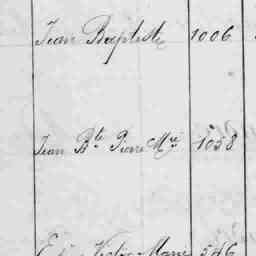 Jean Baptiste 1006
Jean Bte Pierre Mie 1058
Marie 546